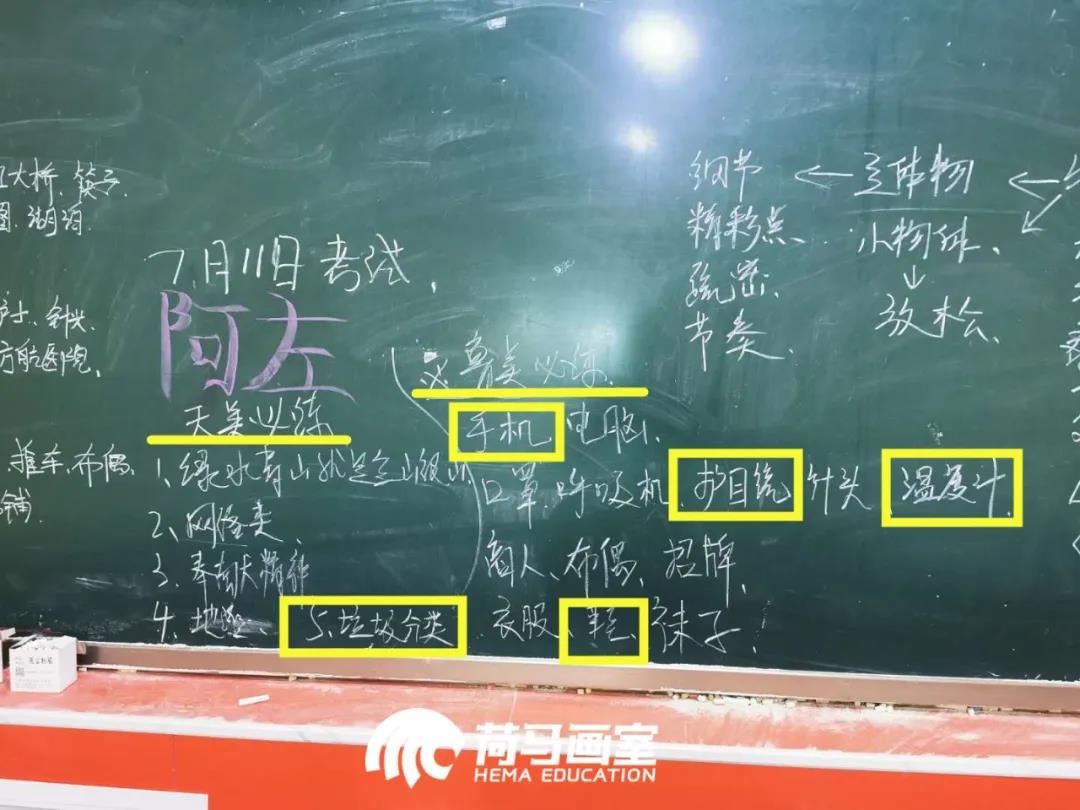 大桥、筷子
图、湖泊
护士、针头
方舱医院
推车、布偶、
铺
7月11日考试
阿左
天美必练
1、绿水青山就是金山银山
2、网络类、
3、奉献精神
4、地摊、5、垃圾分类
鲁美必练
手机 电脑、
口罩 呼吸机 护目镜 针头 温度计
商人、布偶、招牌、
衣服、鞋、袜子
细节 ← 主体物 ←
精彩点、 小物件、
疏密、
放松
节奏、
荷马画室
HEMA EDUCATION